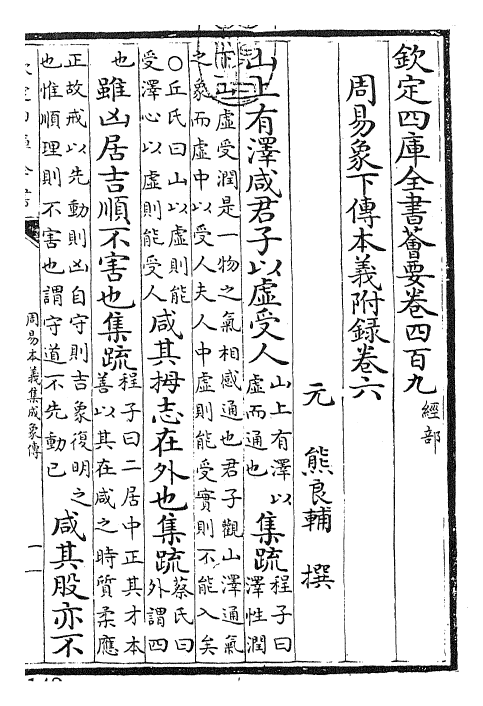 欽定四庫全書薈要卷四百九 經部
周易象下傳本義附錄卷六
元 熊良輔 撰
山上有澤咸君子以虛受人
山上有澤以
虛而通也
集疏
程子曰
澤性潤
虛受潤是一物之氣相感通也君子觀山澤通氣
之象而虛中以受人夫人中虛則能受實則不能入矣
○丘氏曰山以虛則能
受澤心以虛則能受人
咸其拇志在外也集疏
蔡氏曰
外謂四
也
雖凶居吉順不害也集疏
程子曰二居中正其才本
善以其在咸之時質柔應
正故戒以先動則凶自守則吉象復明之
也惟順理則不害也謂守道不先動已
咸其股亦不
周易本義集成象傳